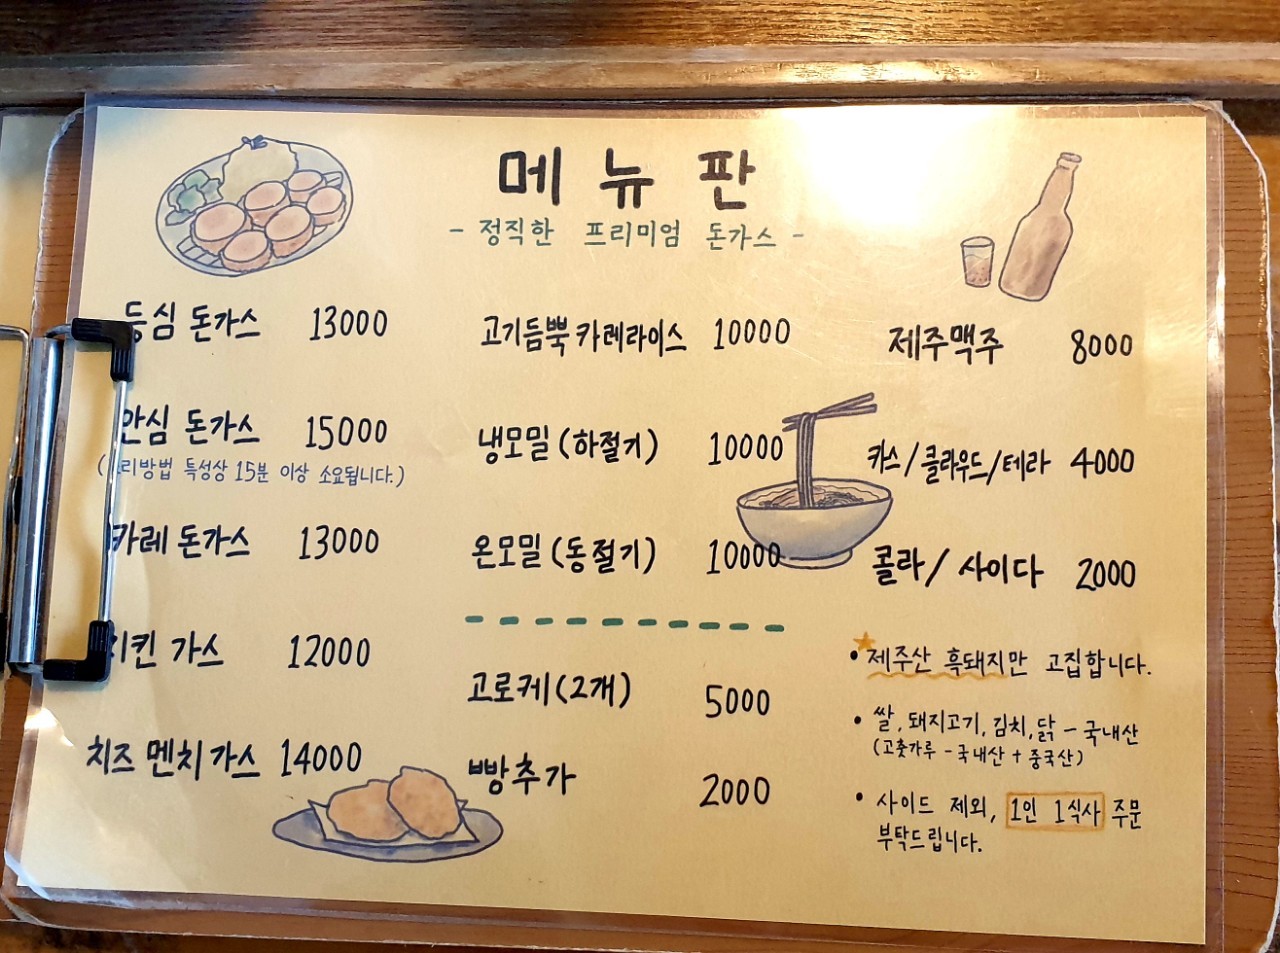 메뉴판
- 정직한 프리미엄 돈가스 -
등심 돈가스 13000
안심 돈가스 15000
(조리방법 특성상 15분 이상 소요됩니다.)
카레 돈가스 13000
치킨 가스 12000
치즈 멘치가스 14000
고기듬뿍 카레라이스 10000
냉모밀 (하절기) 10000
온모밀 (동절기) 10000
고로케 (2개) 5000
빵추가 2000
제주맥주 8000
카스/클라우드/테라 4000
콜라/사이다 2000
• 제주산 흑돼지만 고집합니다.
• 쌀, 돼지고기, 김치, 닭 - 국내산
(고춧가루 - 국내산 + 중국산)
• 사이드 제외, 1인 1식사 주문
부탁드립니다.